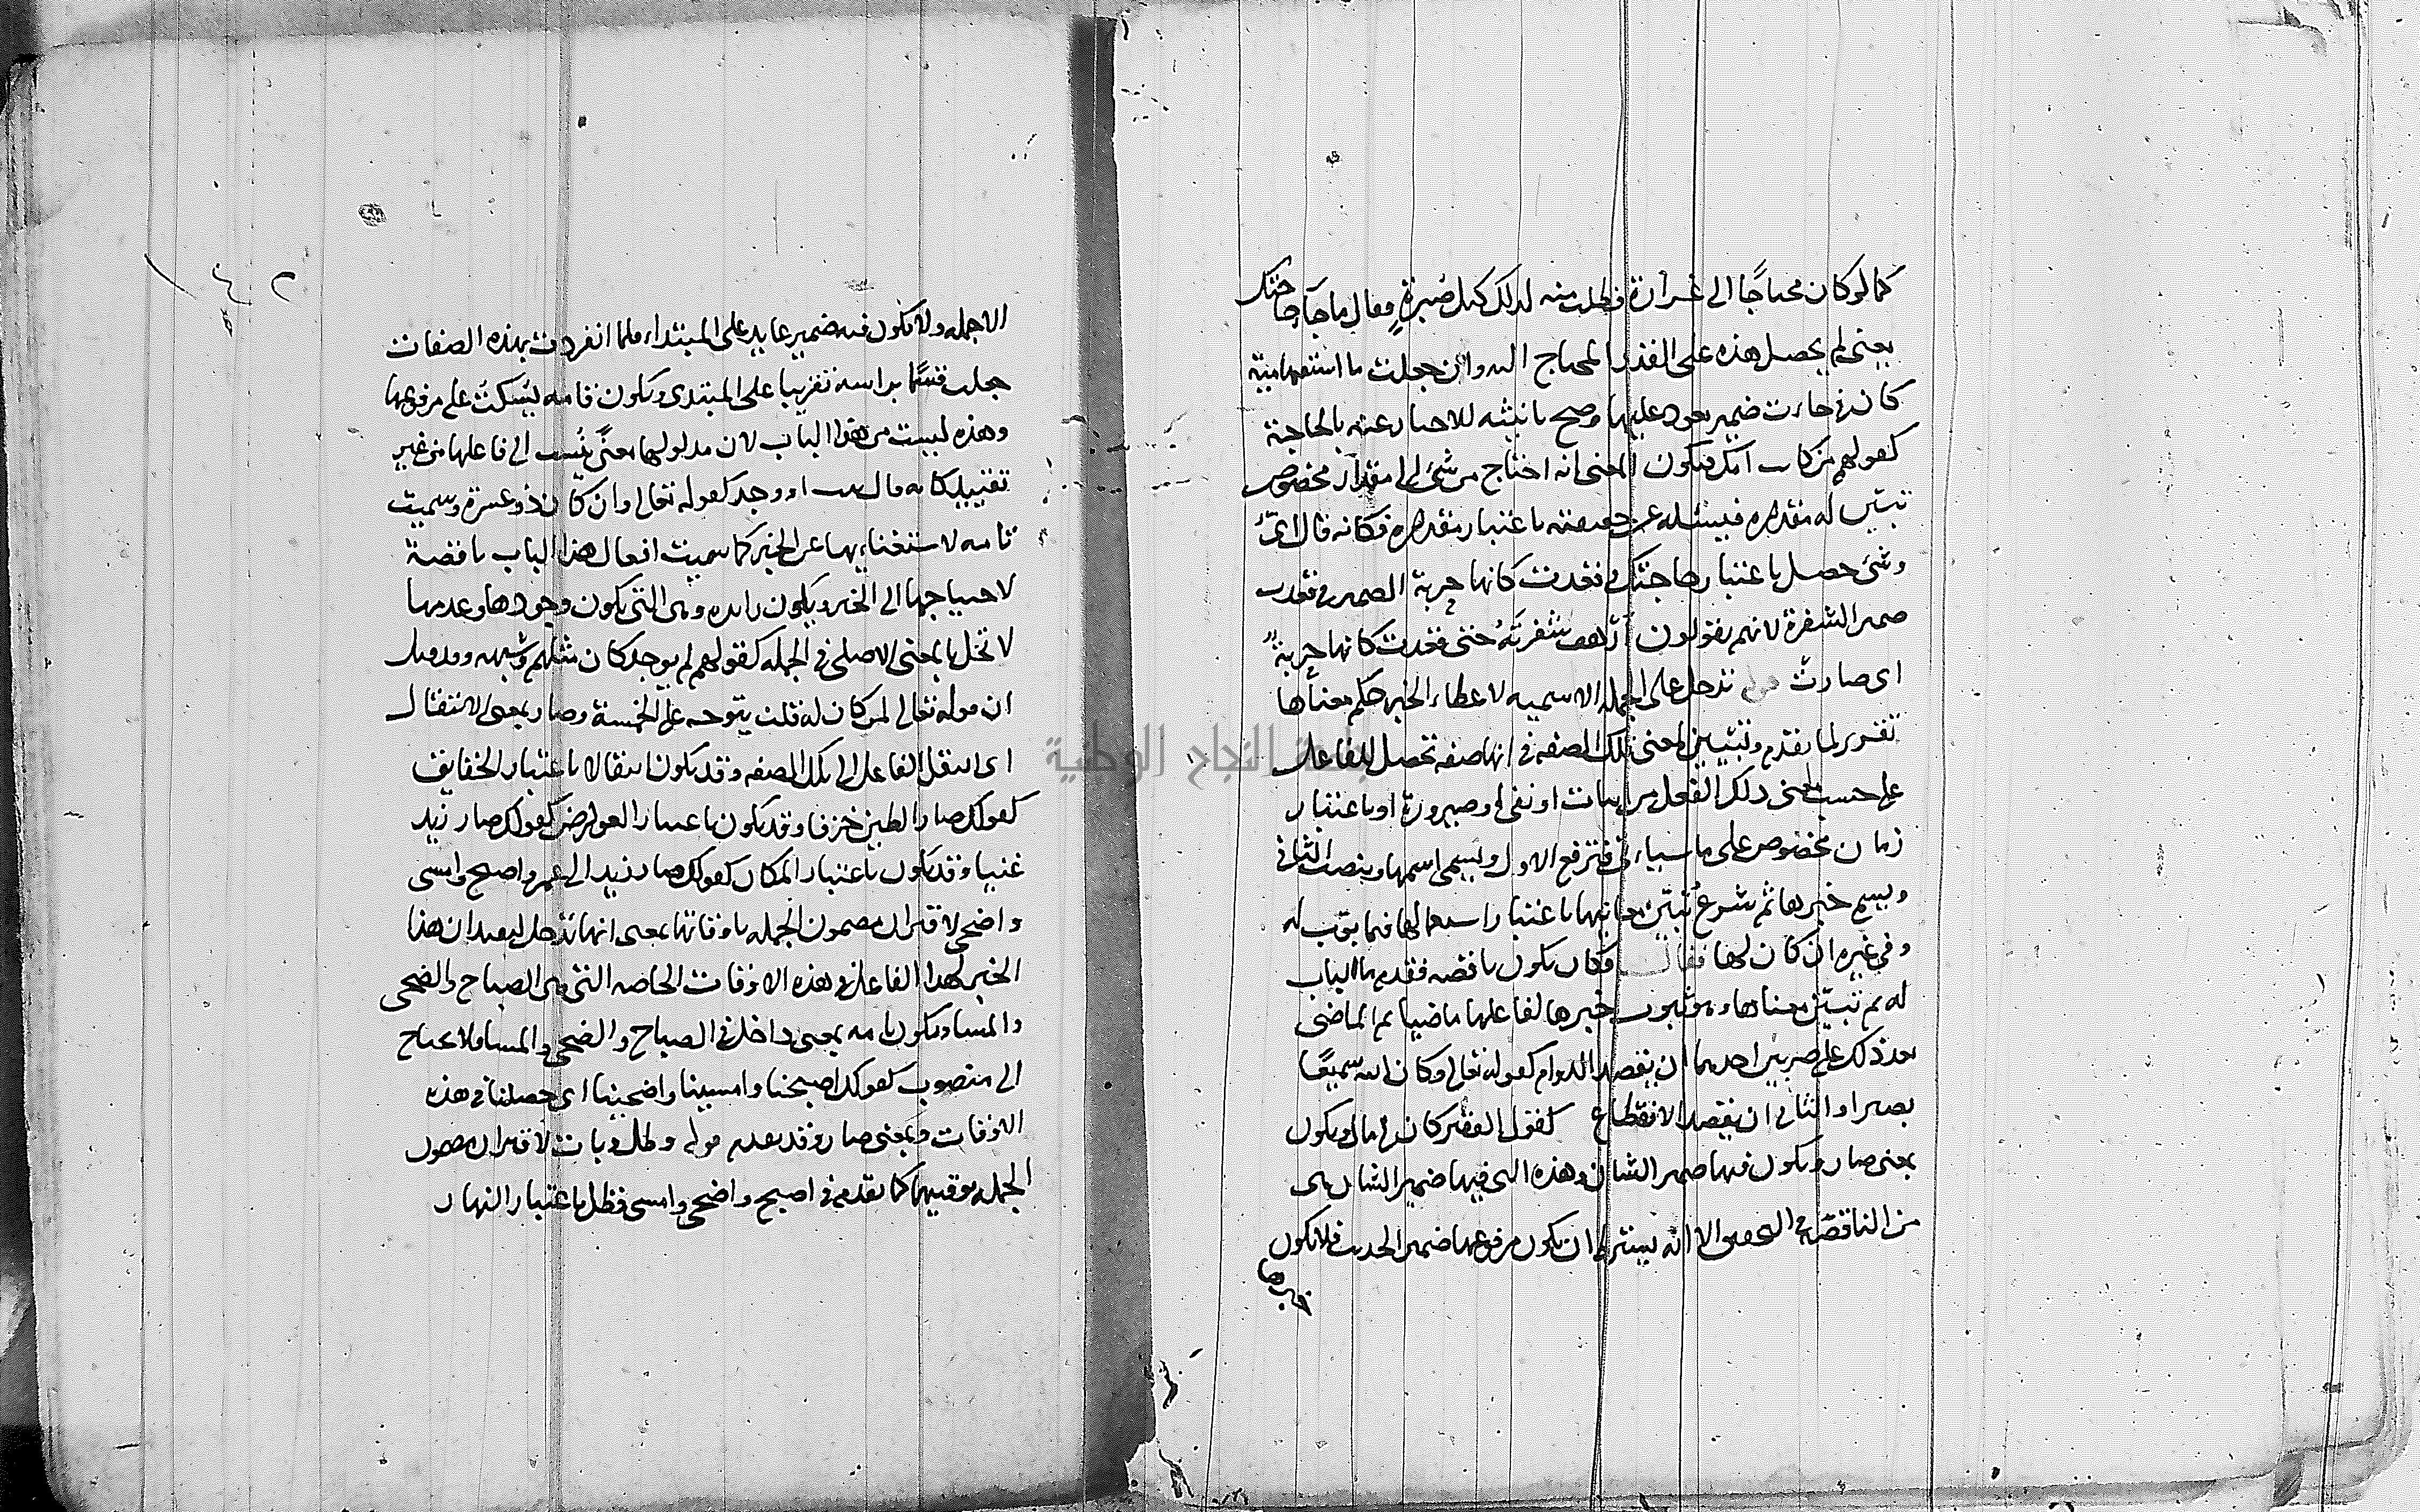 كما لو كان محتاجا الى غرارة فطلب منه لذلك كيل صبرة فقال ما جاءت حاجتك
يعنى لم يحصل هذه على القدر المحتاج اليه وان جعلت ما استفهامية
كان فى جاءت ضمير يعود عليها وصح تانيثه للاخبار عنه بالحاجة
كقولهم من كانت امك فيكون المعنى انه احتاج من شئ الى مقدار مخصوص
تبين له مقداره فيسئله عن حقيقته باعتبار مقداره فكانه قال اى
وشئ حصل باعتبار حاجتك فى قعدت كانها حربة الضمير فى قعدت
ضمير الشفرة لانهم يقولون ارهف شفرته حتى قعدت كانها حربة
اى صارت قوله تدخل على الجملة الاسميه لاعطاء الخبر حكم معناها
تقرير لما تقدم وتبيين لمعنى تلك الصفه فى انها صفه تحصل للفاعل
على حسب معنى ذلك الفعل من اثبات او نفى او صيرورة او باعتبار
زمان مخصوص على ما سياتى فترفع الاول ويسمى اسمها وينصب الثانى
ويسمى خبرها ثم شرع تبين معانيها باعتبار استعمالها فيما بوب له
وفى غيره ان كان لها فقال وكان يكون ناقصه فقدم ما الباب
له ثم تبين معناها وهو ثبوت خبرها لفاعلها ماضيا ثم الماضى
بعد ذلك على ضربين احدهما ان يقصد الدوام كقوله تعالى وكان الله سميعا
بصيرا والثانى ان يقصد الانقطاع كقول الفقير كان لى مال ويكون
بمعنى صار ويكون فيها ضمير الشان وهذه التى فيها ضمير الشان هى
من الناقصة فى التحقيق الا انه يشترط ان يكون مرفوعها ضمير الحديث فلا يكون
خبرها
الا جمله ولا يكون فيه ضمير عايد على المبتداء فلما انفردت بهذه الصفات
جعلت قسما براسه تقريبا على المبتدى ويكون تامه يسكت على مرفوعها
وهذه ليست من هذا الباب لان مدلولها معنى ينسب الى فاعلها من غير
تقييد كانه قال ثبت او وجد كقوله تعالى وان كان ذو عسرة وسميت
تامه لاستغناءيها عن الخبر كما سميت افعال هذا الباب ناقصة
لاحتياجها الى الخبر ويكون زايده وهى التى يكون وجودها وعدمها
لا تخل بالمعنى الاصلى فى الجمله كقولهم لم يوجد كان مثلهم وشبهه وقد قيل
ان قوله تعالى لمن كان له قلب يتوجه على الخمسة وصار بمعنى الانتقال
اى انتقل الفاعل الى تلك الصفه وقد يكون انتقالا باعتبار الحقايق
كقولك صار الطين خزفا وقد يكون باعتبار العوارض كقولك صار زيد
غنيا وقد يكون باعتبار المكان كقولك صار زيد الى عمرو واصبح وامسى
واضحى لاقتران مضمون الجمله باوقاتها بمعنى انها تدخل ليفيد ان هذا
الخبر لهذا الفاعل فى هذه الاوقات الخاصه التى هى الصباح والضحى
والمسا ويكون تامه بمعنى داخل فى الصباح والضحى والمسا فلا يحتاج
الى منصوب كقولك اصبحنا وامسينا واضحينا اى حصلنا فى هذه
الاوقات وبمعنى صار وقد تقدم قوله وظل وبات لاقتران مضمون
الجمله بوقتيهما كما تقدم فى اصبح واضحى وامسى فظل باعتبار النهار
جامعة النجاح الوطنية